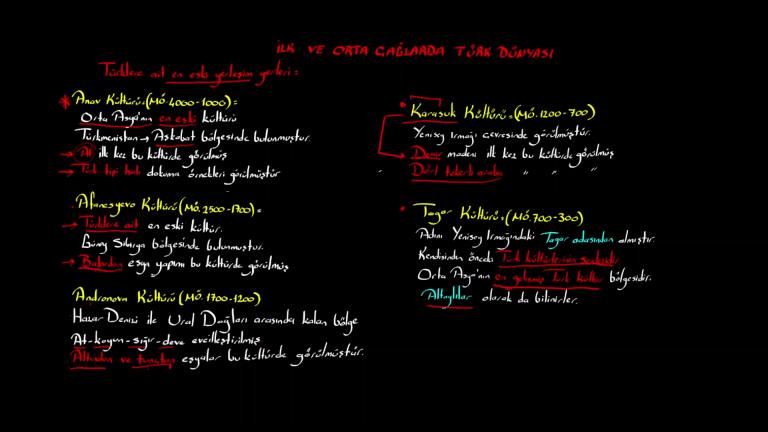 İLK VE ORTA ÇAĞLARDA TÜRK DÜNYASI
Türklere ait en eski yerleşim yerleri =
* Anav Kültürü = (MÖ. 4000 - 1000) =
Orta Asya'nın en eski kültürü
Türkmenistan → Aşkabat bölgesinde bulunmuştur.
→ At ilk kez bu kültürde görülmüş
→ Türk tipi halı dokuma örnekleri görülmüştür
Afanesyevo Kültürü (MÖ. 2500 - 1700) =
→ Türklere ait en eski kültür.
Güney Sibirya bölgesinde bulunmuştur.
→ Bakırdan eşya yapımı bu kültürde görülmüş
Andronova Kültürü (MÖ. 1700 - 1200)
Hazar Denizi ile Ural Dağları arasında kalan bölge
At - koyun - sığır - deve evcilleştirilmiş
Altından ve tunçtan eşyalar bu kültürde görülmüştür.
Karasuk Kültürü = (MÖ. 1200 - 700)
Yenisey Irmağı çevresinde görülmüştür.
→ Demir madeni ilk kez bu kültürde görülmüş
Dört tekerli araba " " "
Tagar Kültürü = (MÖ. 700 - 300)
Adını Yenisey Irmağındaki Tagar adasından almıştır.
Kendisinden önceki Türk kültürlerinin
Orta Asya'nın en gelişmiş Türk kültür bölgesidir.
Altaylılar olarak da bilinirler.